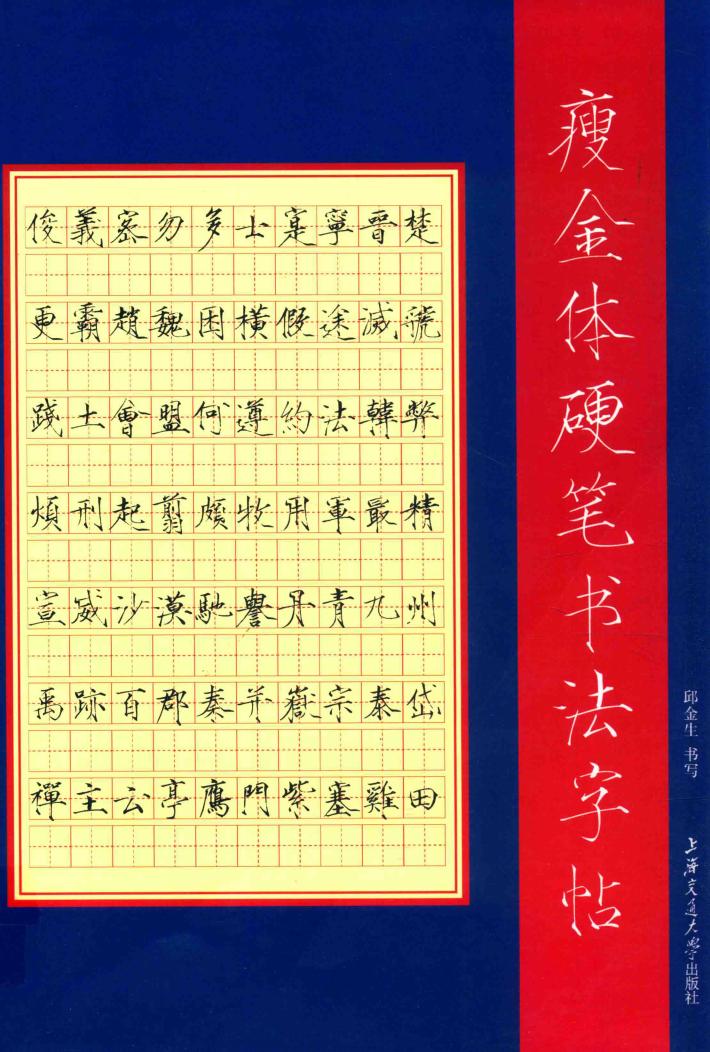 瘦金体硬笔书法字帖
邱金生 书写
上海交通大学出版社
俊義密勿多士寔寧晉楚
更霸趙魏困橫假途滅虢
踐土會盟何遵約法韓弊
煩刑起翦頗牧用軍最精
宣威沙漠馳譽丹青九州
禹跡百郡秦并嶽宗泰岱
禪主云亭鴈門紫塞雞田